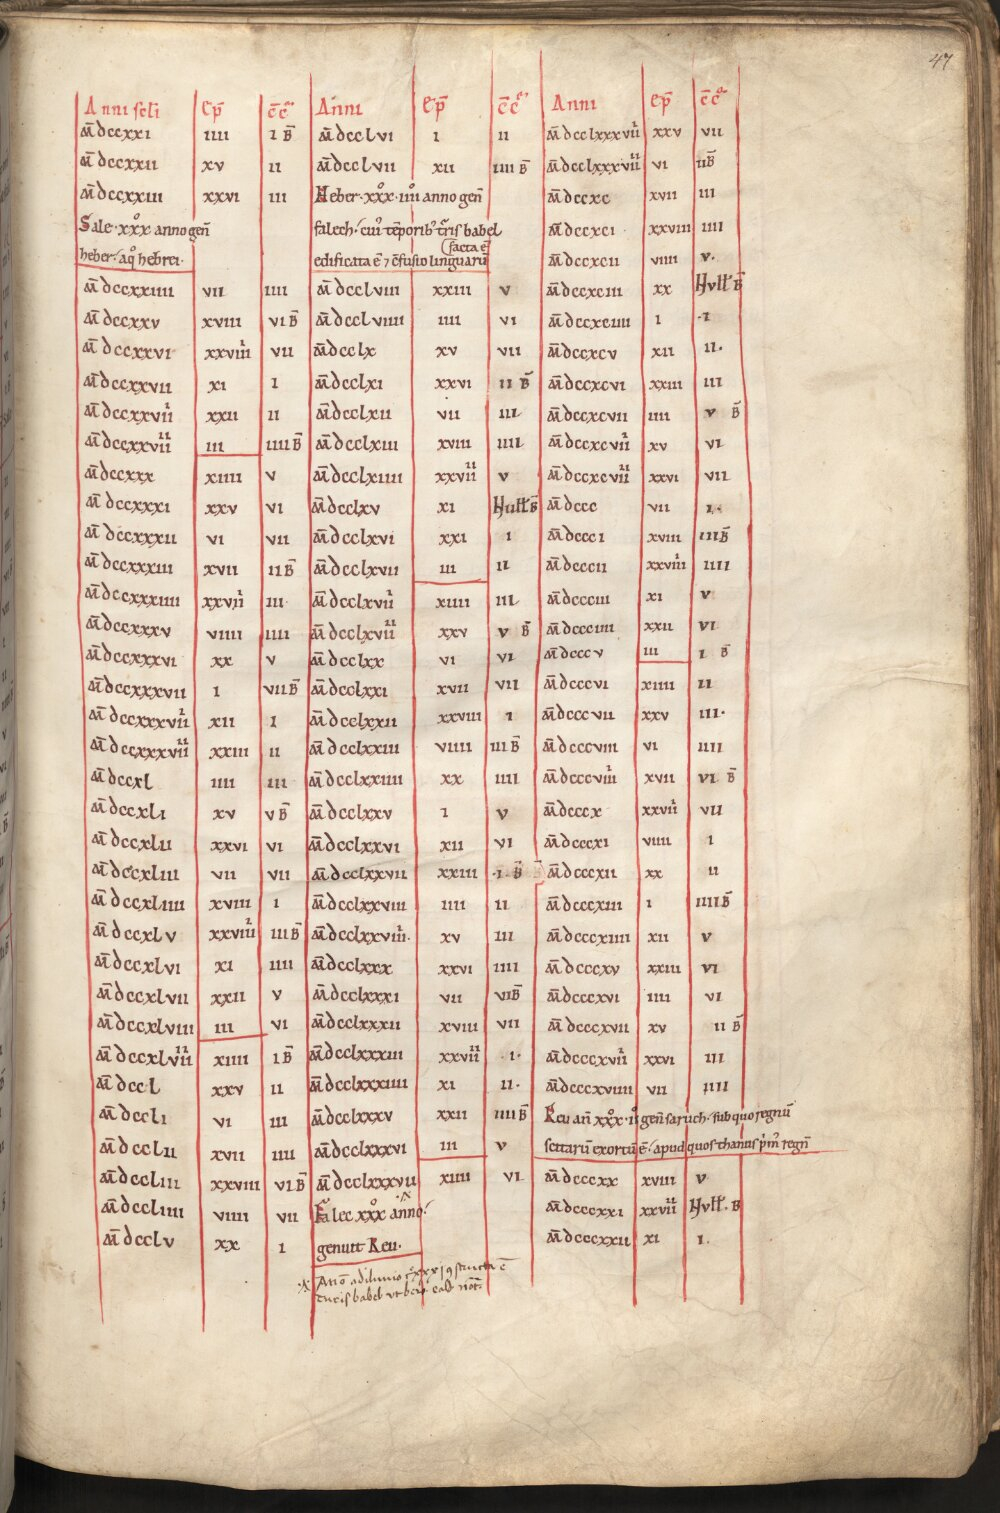 47
Anni scli ep̄ c̄c̄
M̄dccxxi iiii i B̄
M̄dccxxii xv ii
M̄dccxxiii xxvi iii
Sale xxxͦ anno geñ
heber. a q̊ hebrei.
M̄dccxxiiii vii iiii
M̄dccxxv xviii vi B̄
M̄dccxxvi xxviiii vii
M̄dccxxvii xi i
M̄dccxxviii xxii ii
M̄dccxxviiii iii iiii B̄
M̄dccxxx xiiii v
M̄dccxxxi xxv vi
M̄dccxxxii vi vii
M̄dccxxxiii xvii ii B̄
M̄dccxxxiiii xxviii iii
M̄dccxxxv viiii iiii
M̄dccxxxvi xx v
M̄dccxxxvii i vii B̄
M̄dccxxxviii xii i
M̄dccxxxviiii xxiii ii
M̄dccxl iiii iii
M̄dccxli xv v B̄
M̄dccxlii xxvi vi
M̄dccxliii vii vii
M̄dccxliiii xviii i
M̄dccxlv xxviiii iii B̄
M̄dccxlvi xi iiii
M̄dccxlvii xxii v
M̄dccxlviii iii vi
M̄dccxlviiii xiiii i B̄
M̄dccl xxv ii
M̄dccli vi iii
M̄dcclii xvii iiii
M̄dccliii xxviii vi B̄
M̄dccliiii viiii vii
M̄dcclv xx i
Anni ep̄ c̄c̄
M̄dcclvi i ii
M̄dcclvii xii iiii B̄
Heber. xxxͦ. iiiiͦ anno geñ
falech. cui' tēporib' t'ris babel
edificata ē ⁊ c̄fusio linguarū
facta ē
M̄dcclviii xxiii v
M̄dcclviiii iiii vi
M̄dcclx xv vii
M̄dcclxi xxvi ii B̄
M̄dcclxii vii iii
M̄dcclxiii xviii iiii
M̄dcclxiiii xxviiii v
M̄dcclxv xi Null' B̄
M̄dcclxvi xxi i
M̄dcclxvii iii ii
M̄dcclxviii xiiii iii
M̄dcclxviiii xxv v B̄
M̄dcclxx vi vi
M̄dcclxxi xvii vii
M̄dcclxxii xxviii i
M̄dcclxxiii viiii iii B̄
M̄dcclxxiiii xx iiii
M̄dcclxxv i v
M̄dcclxxvi xii vi
M̄dcclxxvii xxiii .i. B̄
M̄dcclxxviii iiii ii
M̄dcclxxviiii. xv iii
M̄dcclxxx xxvi iiii
M̄dcclxxxi vii vi B̄
M̄dcclxxxii xviii vii
M̄dcclxxxiii xxviiii .i.
M̄dcclxxxiiii xi ii.
M̄dcclxxxv xxii iiii B̄
M̄dcclxxxvi iii v
M̄dcclxxxvii xiiii vi
Falec xxxͦ anno.
genuit Reu.
Anni ep̄ c̄c̄
M̄dcclxxxviii xxv vii
M̄dcclxxxviiii vi ii B̄
M̄dccxc xvii iii
M̄dccxci xxviii iiii
M̄dccxcii viiii v.
M̄dccxciii xx Null' B̄
M̄dccxciiii i .i
M̄dccxcv xii ii.
M̄dccxcvi xxiii iii
M̄dccxcvii iiii v B̄
M̄dccxcviii xv vi
M̄dccxcviiii xxvi vii
M̄dccc vii i.
M̄dccci xviii iii B̄
M̄dcccii xxviiii iiii
M̄dccciii xi v
M̄dccciiii xxii vi
M̄dcccv iii i B̄
M̄dcccvi xiiii ii
M̄dcccvii xxv iii.
M̄dcccviii vi iiii
M̄dcccviiii xvii vi B̄
M̄dcccx xxviii vii
M̄dcccxi viiii i
M̄dcccxii xx ii
M̄dcccxiii i iiii B̄
M̄dcccxiiii xii v
M̄dcccxv xxiii vi
M̄dcccxvi iiii vi
M̄dcccxvii xv ii B̄
M̄dcccxviii xxvi iii
M̄dcccxviiii vii iiii
Reu añ xxxͦ. iiͦ geñ saruch. sub quo regnū
scitarū exortū ē. apud quos thanus p'm' regñ
M̄dcccxx xviii v
M̄dcccxxi xxviiii Null'. B
M̄dcccxxii xi i.
turris babel